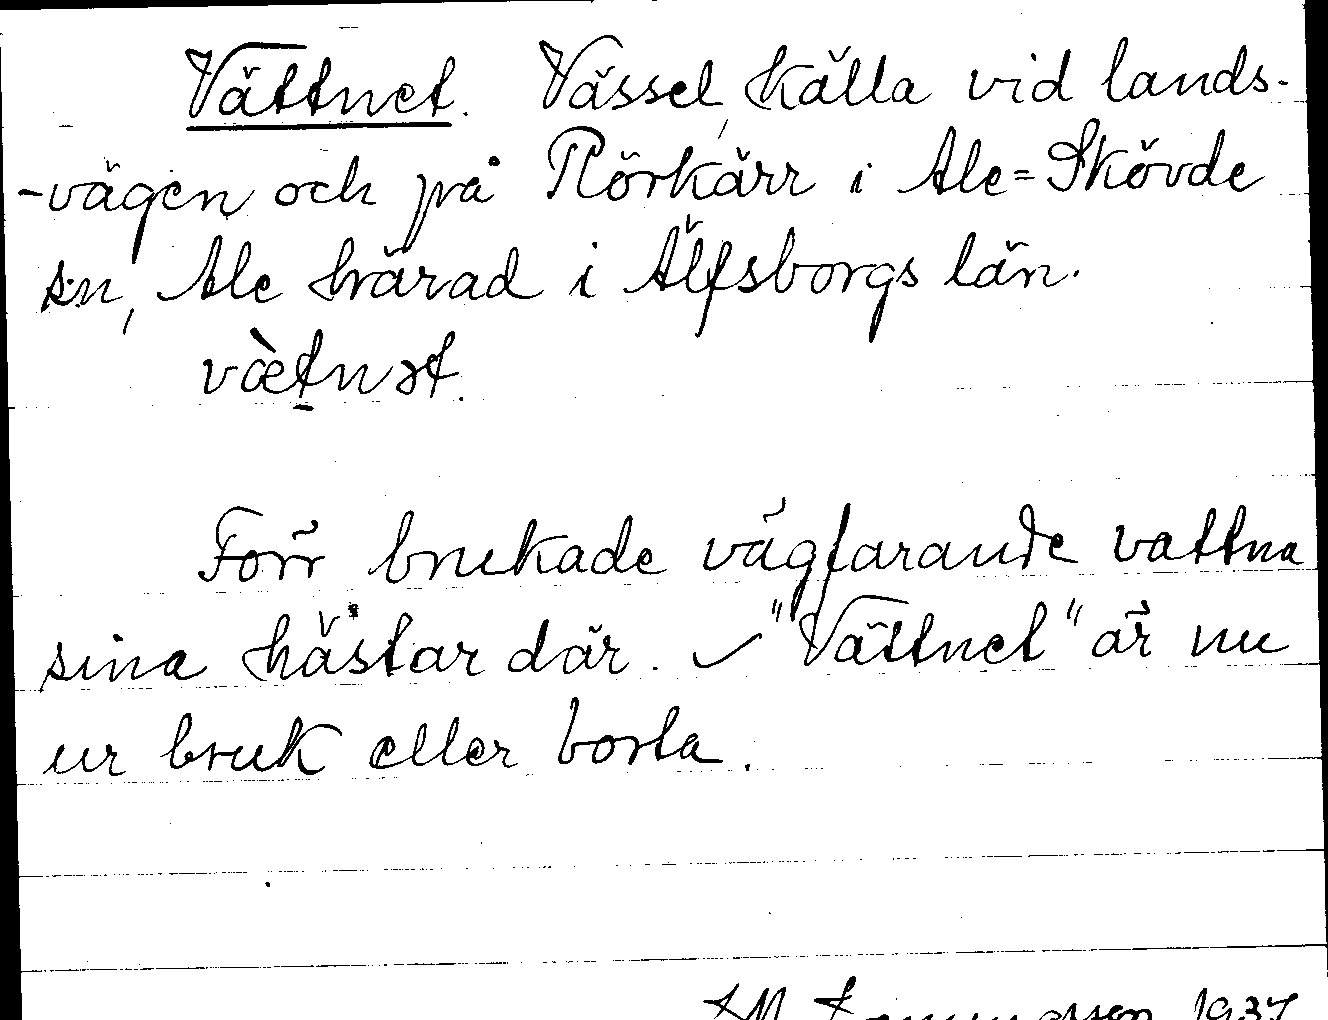 Vättnet. Vässel, källa vid lands-
-vägen och på Rörkärr i Ale=Skövde
sn, Ale härad i Älfsborgs län.
væ̀tnət.
Förr brukade vägfarande vattna
sina hästar där. "Vättnet" är nu
ur bruk eller borta.
1937